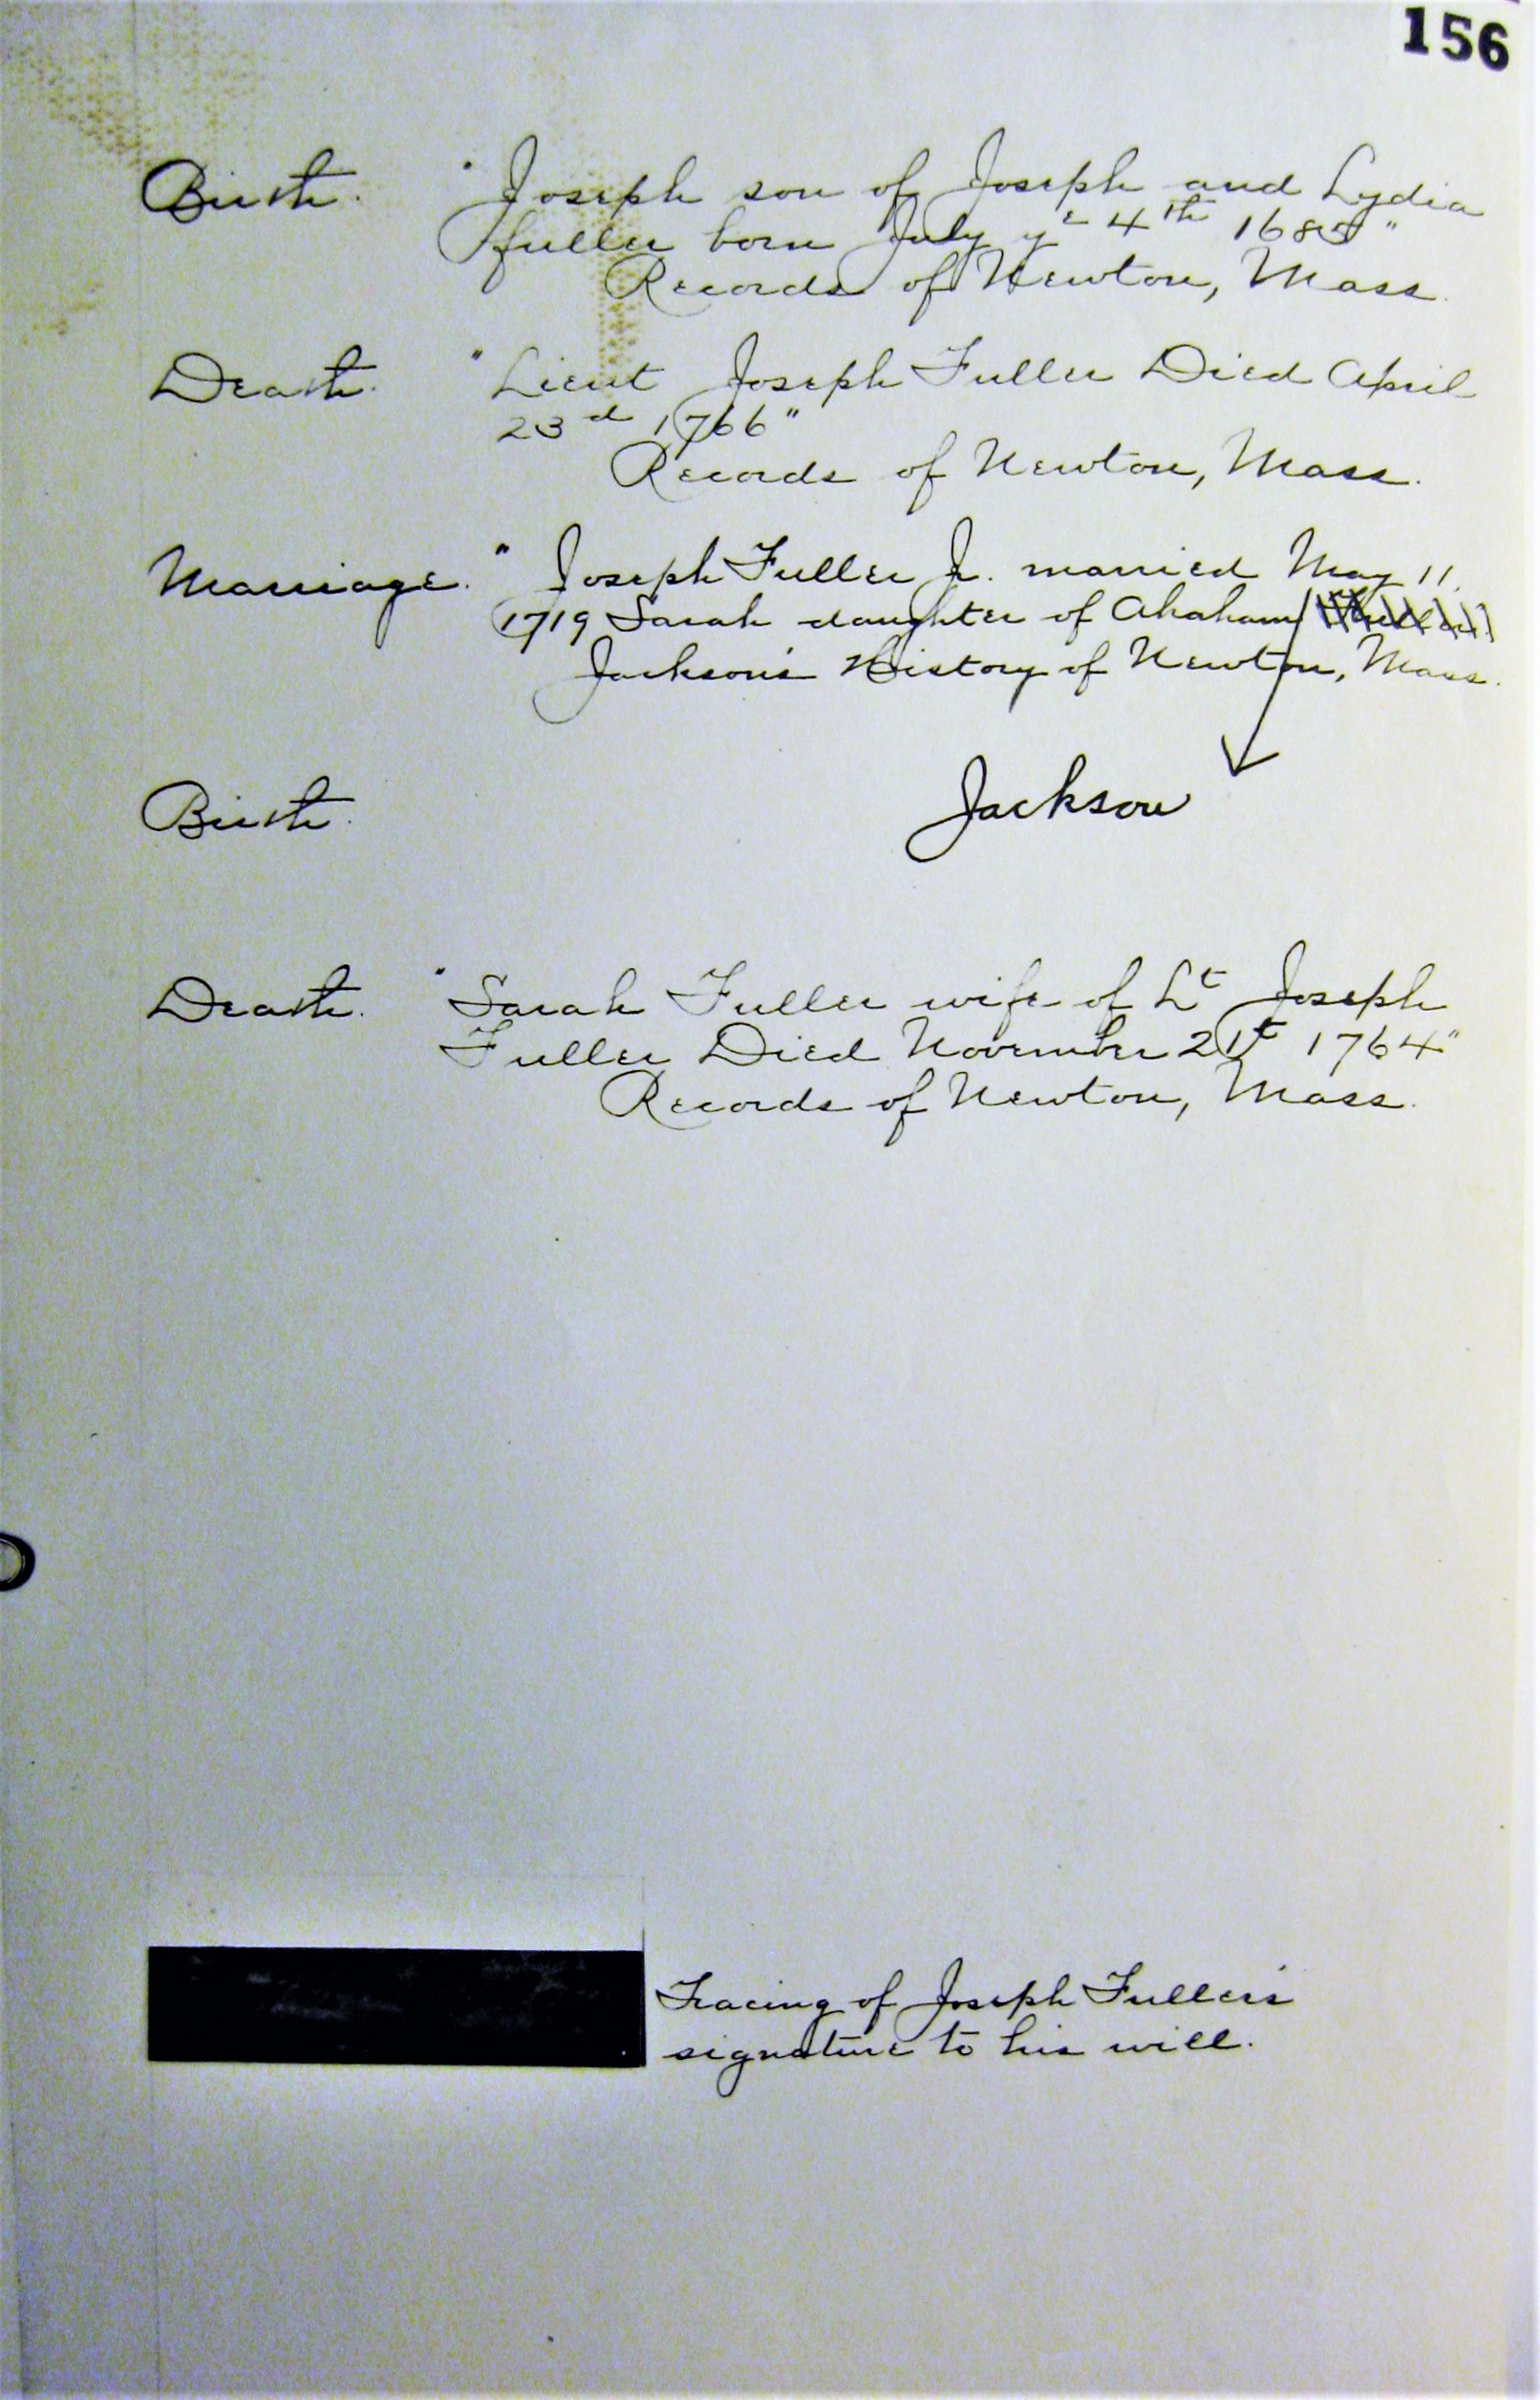 156
Birth. "Joseph son of Joseph and Lydia
fuller born July yᵉ 4th 1685"
Records of Newton, Mass.
Death. "Lieut Joseph Fuller Died April
23d 1766"
Records of Newton, Mass.
Marriage. "Joseph Fuller Jr. married May 11.
1719 Sarah daughter of Abraham
Jackson's History of Newton, Mass.
Jackson
Birth.
Death. "Sarah Fuller wife of Lt Joseph
Fuller Died November 21t 1764"
Records of Newton, Mass.
Tracing of Joseph Fuller's
signature to his will.